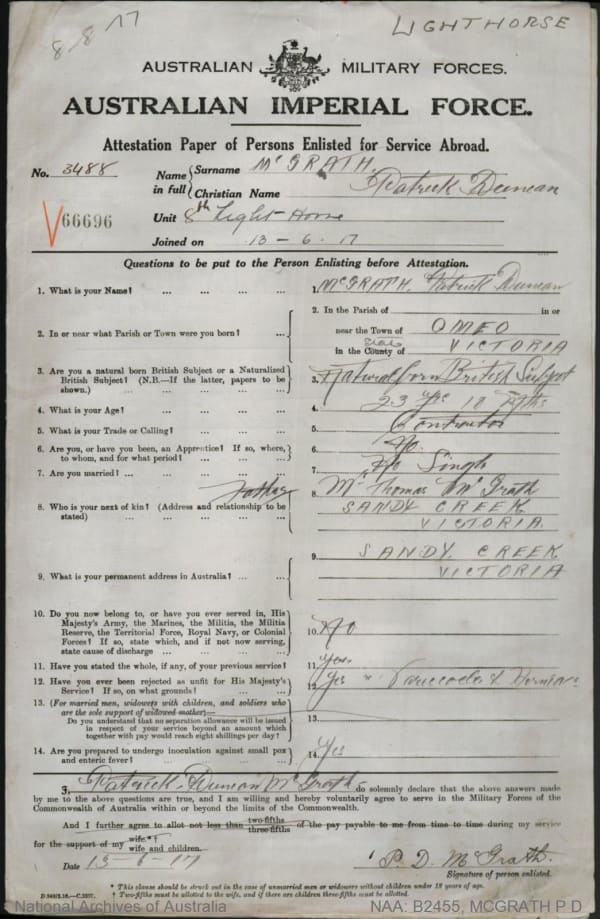 8 8 17
LIGHTHORSE
AUSTRALIAN MILITARY FORCES.
AUSTRALIAN IMPERIAL FORCE.
Attestation Paper of Persons Enlisted for Service Abroad.
No. 3488
Name in full { Surname McGRATH.
Christian Name Patrick Duncan
V66696
Unit 8th Light Horse
Joined on 13-6-17
Questions to be put to the Person Enlisting before Attestation.
1. What is your Name? ... ... ... ...
1. McGRATH. Patrick Duncan
2. In or near what Parish or Town were you born? ...
2. In the Parish of in or
near the Town of OMEO
in the County of State VICTORIA
3. Are you a natural born British Subject or a Naturalized
British Subject? (N.B.—If the latter, papers to be
shown.) ... ... ... ... ...
3. Natural born British Subject
4. What is your Age? ... ... ... ...
4. 23 yrs
5. What is your Trade or Calling? ... ... ...
5. Contractor
6. Are you, or have you been, an Apprentice? If so, where,
to whom, and for what period? ... ... ...
6. No.
7. Are you married? ... ... ... ...
7. No Single
8. Who is your next of kin? (Address and relationship to be
stated) ... ... ... ... ...
Father
8. Mr Thomas McGrath
SANDY CREEK
VICTORIA
9. What is your permanent address in Australia? ... ...
9. SANDY. CREEK
VICTORIA
10. Do you now belong to, or have you ever served in, His
Majesty's Army, the Marines, the Militia, the Militia
Reserve, the Territorial Force, Royal Navy, or Colonial
Forces? If so, state which, and if not now serving,
state cause of discharge ... ... ... ...
10. No
11. Have you stated the whole, if any, of your previous service?
11. Yes
12. Have you ever been rejected as unfit for His Majesty's
Service? If so, on what grounds? ... ...
12. Yes
13. (For married men, widowers with children, and soldiers who
are the sole support of widowed mother)—
Do you understand that no separation allowance will be issued
in respect of your service beyond an amount which
together with pay would reach eight shillings per day?
13.
14. Are you prepared to undergo inoculation against small pox
and enteric fever? ... ... ... ...
14. Yes
I, Patrick Duncan McGrath do solemnly declare that the above answers made
by me to the above questions are true, and I am willing and hereby voluntarily agree to serve in the Military Forces of the
Commonwealth of Australia within or beyond the limits of the Commonwealth.
And I further agree to allot not less than two-fifths three-fifths of the pay payable to me from time to time during my service
for the support of my wife.*† wife and children.
Date 13-6-17
P. D. McGrath.
Signature of person enlisted.
* This clause should be struck out in the case of unmarried men or widowers without children under 18 years of age.
† Two-fifths must be allotted to the wife, and if there are children three-fifths must be allotted.
National Archives of Australia
NAA: B2455, MCGRATH P D